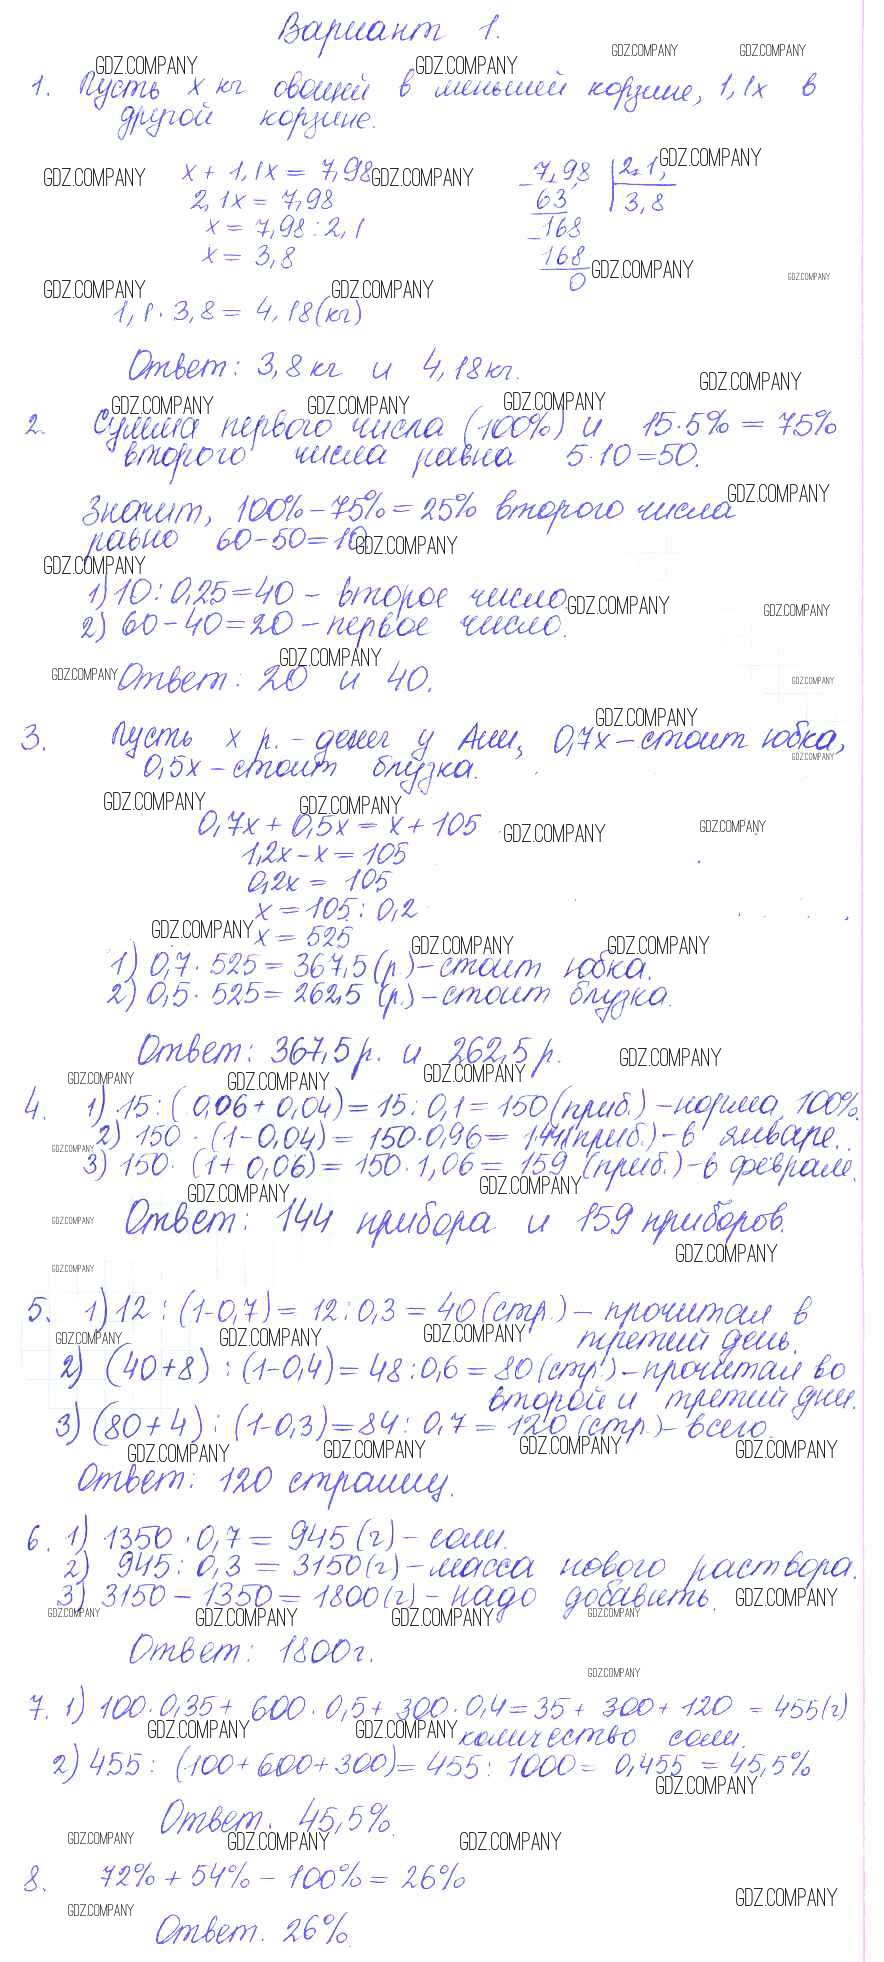 Вариант 1.
GDZ.COMPANY GDZ.COMPANY
GDZ.COMPANY GDZ.COMPANY
1. Пусть x кг овощей в меньшей корзине, 1,1x в
другой корзине.
x + 1,1x = 7,98
GDZ.COMPANY GDZ.COMPANY GDZ.COMPANY
2,1x = 7,98
x = 7,98 : 2,1
x = 3,8
7,98 2,1
63 3,8
168
168
0
GDZ.COMPANY GDZ.COMPANY
GDZ.COMPANY GDZ.COMPANY
1,1 · 3,8 = 4,18 (кг)
Ответ: 3,8 кг и 4,18 кг.
GDZ.COMPANY
GDZ.COMPANY GDZ.COMPANY GDZ.COMPANY
2. Сумма первого числа (100%) и 15·5% = 75%
второго числа равна 5·10=50.
GDZ.COMPANY
Значит, 100% – 75% = 25% второго числа
равно 60–50=10
GDZ.COMPANY
GDZ.COMPANY
1) 10 : 0,25 = 40 – второе число.
GDZ.COMPANY GDZ.COMPANY
2) 60 – 40 = 20 – первое число.
GDZ.COMPANY
GDZ.COMPANY GDZ.COMPANY
Ответ: 20 и 40.
GDZ.COMPANY
3. Пусть x р. – денег у Ани, 0,7x – стоит юбка,
GDZ.COMPANY
0,5x – стоит блузка.
GDZ.COMPANY GDZ.COMPANY
0,7x + 0,5x = x + 105
GDZ.COMPANY GDZ.COMPANY
1,2x – x = 105
0,2x = 105
x = 105 : 0,2
GDZ.COMPANY
x = 525
GDZ.COMPANY GDZ.COMPANY
1) 0,7 · 525 = 367,5 (р.) – стоит юбка.
2) 0,5 · 525 = 262,5 (р.) – стоит блузка.
Ответ: 367,5 р. и 262,5 р.
GDZ.COMPANY
GDZ.COMPANY GDZ.COMPANY GDZ.COMPANY
4. 1) 15 : (0,06 + 0,04) = 15 : 0,1 = 150 (приб.) – норма, 100%.
2) 150 · (1 – 0,04) = 150 · 0,96 = 144 (приб.) – в январе.
GDZ.COMPANY
3) 150 · (1 + 0,06) = 150 · 1,06 = 159 (приб.) – в феврале.
GDZ.COMPANY GDZ.COMPANY
Ответ: 144 прибора и 159 приборов.
GDZ.COMPANY
GDZ.COMPANY
GDZ.COMPANY
5. 1) 12 : (1–0,7) = 12 : 0,3 = 40 (стр.) – прочитал в
третий день.
GDZ.COMPANY GDZ.COMPANY GDZ.COMPANY
2) (40+8) : (1–0,4) = 48 : 0,6 = 80 (стр.) – прочитал во
второй и третий дни.
3) (80+4) : (1–0,3) = 84 : 0,7 = 120 (стр.) – всего.
GDZ.COMPANY GDZ.COMPANY GDZ.COMPANY GDZ.COMPANY
Ответ: 120 страниц.
6. 1) 1350 · 0,7 = 945 (г) – соли.
2) 945 : 0,3 = 3150 (г) – масса нового раствора.
3) 3150 – 1350 = 1800 (г) – надо добавить.
GDZ.COMPANY
GDZ.COMPANY GDZ.COMPANY GDZ.COMPANY GDZ.COMPANY
Ответ: 1800 г.
GDZ.COMPANY
7. 1) 100 · 0,35 + 600 · 0,5 + 300 · 0,4 = 35 + 300 + 120 = 455 (г)
GDZ.COMPANY GDZ.COMPANY
количество соли.
2) 455 : (100 + 600 + 300) = 455 : 1000 = 0,455 = 45,5%
GDZ.COMPANY
Ответ. 45,5%.
GDZ.COMPANY GDZ.COMPANY GDZ.COMPANY
8. 72% + 54% – 100% = 26%
GDZ.COMPANY
GDZ.COMPANY
Ответ. 26%.